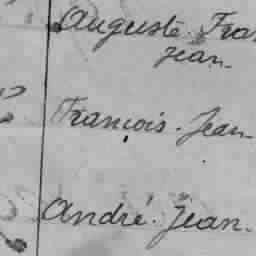 Auguste. Fra
Jean.
François. Jean
André. Jean.